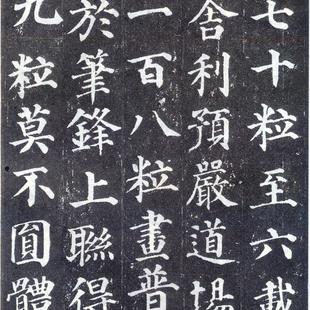 七十粒至六載
舍利預嚴道場
一百八粒畫普
於筆鋒上聯得
九粒莫不圓體